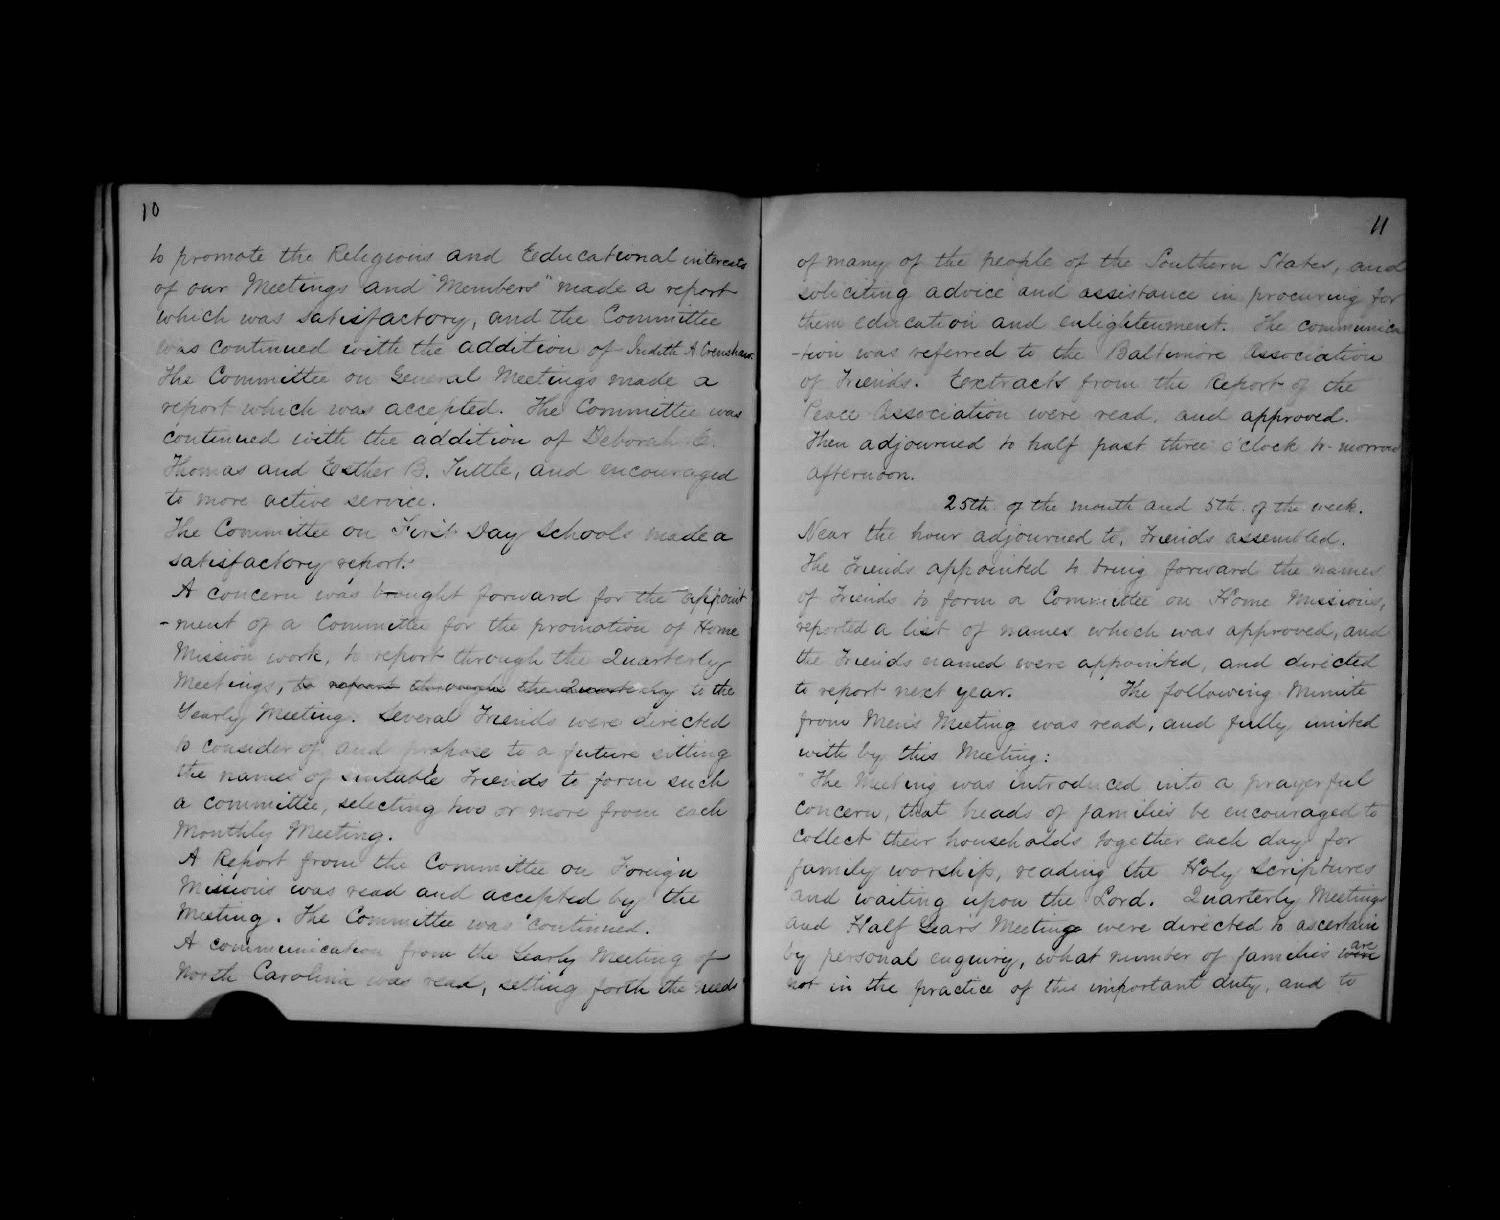 10
to promote the Religious and Educational interests
of our Meetings and "Members" made a report
which was satisfactory, and the Committee
was continued with the addition of Judith A Crenshaw.
The Committee on General Meetings made a
report which was accepted. The Committee was
continued with the addition of Deborah C.
Thomas and Esther B. Tuttle, and encouraged
to more active service.
The Committee on First Day Schools made a
satisfactory report.
A concern was brought forward for the appoint
-ment of a Committee for the promotion of Home
Mission work, to report through the Quarterly
Meetings, to report through the Quarterly to the
Yearly Meeting. Several Friends were directed
to consider of, and propose to a future sitting
the names of suitable Friends to form such
a committee, selecting two or more from each
Monthly Meeting.
A Report from the Committee on Foreign
Missions was read and accepted by the
Meeting. The Committee was continued.
A communication from the Yearly Meeting of
North Carolina was read, setting forth the needs
11
of many of the people of the Southern States, and
soliciting advice and assistance in procuring for
them education and enlightenment. The communica
-tion was referred to the Baltimore Association
of Friends. Extracts from the Report of the
Peace Association were read, and approved.
Then adjourned to half past three o'clock to-morrow
afternoon.
25th of the month and 5th of the week.
Near the hour adjourned to, Friends assembled.
The Friends appointed to bring forward the names
of Friends to form a Committee on Home Missions,
reported a list of names which was approved, and
the Friends named were appointed, and directed
to report next year. The following Minute
from Men's Meeting was read, and fully united
with by this Meeting:
"The Meeting was introduced into a prayerful
concern, that heads of families be encouraged to
collect their households together each day for
family worship, reading the Holy Scriptures
and waiting upon the Lord. Quarterly Meetings
and Half Year's Meeting were directed to ascertain
by personal enquiry, what number of families were are
not in the practice of this important duty, and to